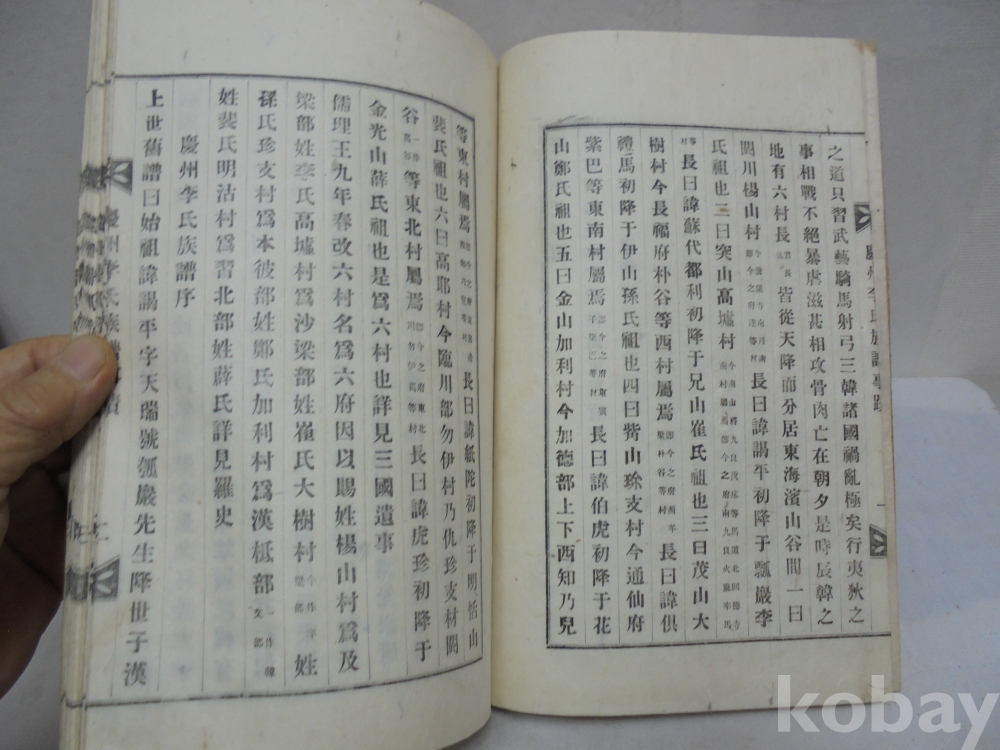 慶州李氏族譜事蹟
之道只習武藝騎馬射弓三韓諸國禍亂極矣行夷狄之
事相戰不絕暴虐滋甚相攻骨肉亡在朝夕是時辰韓之
地有六村長皆從天降而分居東海濱山谷間一曰
閼川楊山村 長曰諱謁平初降于瓢巖李
氏祖也二曰突山高墟村
長曰諱蘇伐都利初降于兄山崔氏祖也三曰茂山大
樹村今長福府朴谷等西村屬焉 長曰諱俱
禮馬初降于伊山孫氏祖也四曰觜山珍支村今通仙府
紫巴等東南村屬焉 長曰諱伯虎初降于花
山鄭氏祖也五曰金山加利村今加德部上下西知乃兒
等東村屬焉 長曰諱紙陀初降于明活山
裴氏祖也六曰高耶村今臨川部勿伊村乃仇珍支村闕
谷等東北村屬焉 長曰諱虎珍初降于
金光山薛氏祖也是爲六村也詳見三國遺事
儒理王九年春改六村名爲六府因以賜姓楊山村爲及
梁部姓李氏高墟村爲沙梁部姓崔氏大樹村 姓
孫氏珍支村爲本彼部姓鄭氏加利村爲漢柢部
姓裴氏明活村爲習北部姓薛氏詳見羅史
慶州李氏族譜序
上世舊譜曰始祖諱謁平字天瑞號瓢巖先生降世于漢
慶州李氏族譜事蹟
kobay